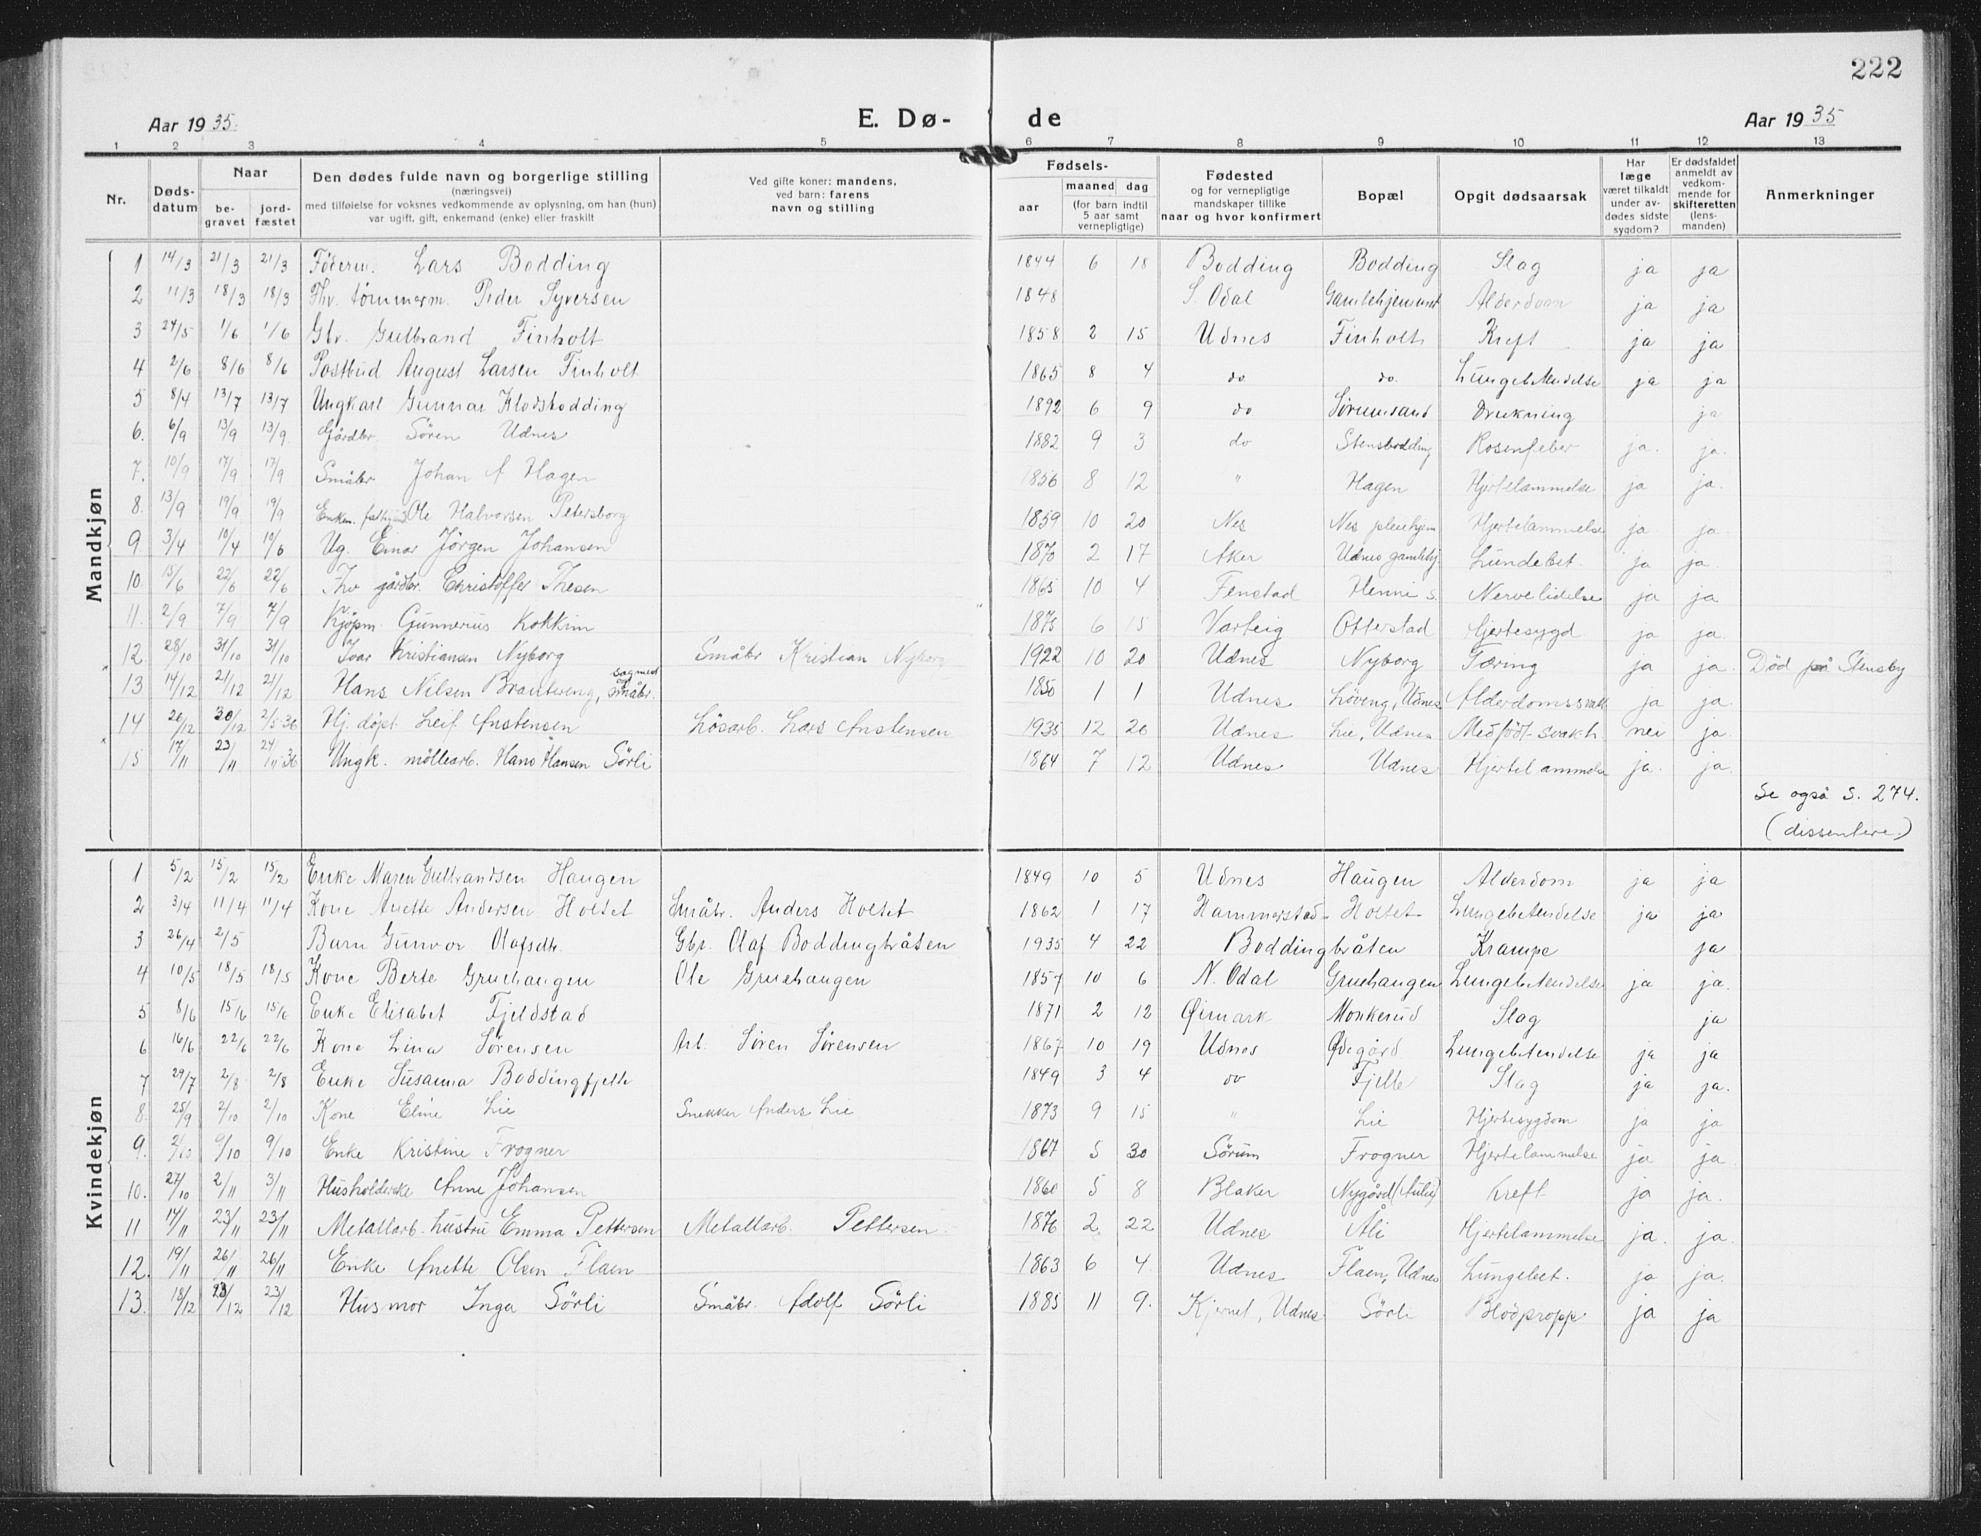 222
Aar 1935.
E. Dø-
de
Aar 1935
1 2 3 4 5 6 7 8 9 10 11 12 13
Nr.
Døds-
datum
Naar
be-
gravet
jord-
fæstet
Den dødes fulde navn og borgerlige stilling
(næringsvei)
med tilføielse for voksnes vedkommende av oplysning, om han (hun)
var ugift, gift, enkemand (enke) eller fraskilt
Ved gifte koner: mandens,
ved barn: farens
navn og stilling
Fødsels-
aar
maaned dag
(for barn indtil
5 aar samt
vernepligtige)
Fødested
og for vernepligtige
mandskaper tillike
naar og hvor konfirmert
Bopæl
Opgit dødsaarsak
Har
læge
været tilkaldt
under av-
dødes sidste
sygdom?
Er dødsfaldet
anmeldt av
vedkom-
mende for
skifteretten
(lens-
manden)
Anmerkninger
Mandkjøn
1 14/3 21/3 21/3 Föderm. Lars Bodding 1844 6 18 Bodding Bodding Slag ja ja
2 11/3 18/3 18/3 Fhv. tömmerm. Peder Syversen 1848 S. Odal Alderdom ja ja
3 24/5 1/6 1/6 Gbr. Gulbrand Finholt 1858 2 15 Udnes Finholt Kreft ja ja
4 2/6 8/6 8/6 Postbud August Larsen Finholt 1865 8 4 do do. Lungebetendelse ja ja
5 8/4 13/7 13/7 Ungkarl Gunnar Klodsbodding 1892 6 9 do Sørumsand Drukning ja
6. 6/9 13/9 13/9 Gårdbr. Sören Udnes 1882 9 3 do Stensbodding Rosenfeber ja. ja.
7. 10/9 17/9 17/9 Småbr Johan A Hagen 1856 8 12 " Hagen Hjertelammelse ja ja.
8. 13/9 19/9 19/9 Enkem. Ole Halvorsen Petersborg 1859 10 20 Nes Nes pleiehjem Hjertelammelse ja ja.
9 3/4 10/4 10/6 Ug. Einar Jörgen Johansen 1870 2 17 Aker Udnes gamlehj. Lundebet. ja ja.
10. 15/6 22/6 22/6 Fhv gårdbr. Christoffer Thesen 1865 10 4 Fenstad Henni s. Nervelidelse ja ja
11. 2/9 7/9 7/9 Kjöpm. Gunnerius Kokkim 1875 6 15 Varteig Otterstad Hjertesygd ja ja.
12. 28/10 31/10 31/10 Ivar Kristiansen Nyborg Småbr Kristian Nyborg 1922 10 20 Udnes Nyborg Tæring ja ja. Död på Stensby
13 14/12 21/12 21/12 Hans Nilsen Brantveng, småbr. 1850 1 1 Udnes Löveng, Udnes Alderdomssvakh ja ja.
14 20/12 30/12 2/5-36 Hj. döpt Leif Anstensen Lösarb. Lars Anstensen 1935 12 20 Udnes Lie, Udnes Medfödt svakh. nei ja.
15 17/11 23/11 24/11-36 Ungk. möllearb. Hans Hansen Sörli 1864 7 12 Udnes Udnes Hjertelammelse ja. ja.
Se også s. 274.
(dissentere.)
Kvindekjøn
1 5/2 15/2 15/2 Enke Maren Gulbrandsen Haugen 1849 10 5 Udnes Haugen Alderdom ja ja
2 3/4 11/4 11/4 Kone Anette Andersen Holtet Småbr. Anders Holtet 1862 1 17 Hammerstad Holtet Lungebetendelse ja ja
3 26/4 2/5 Barn Gunvor Olafsdtr. Gbr. Olaf Boddingbråten 1935 4 22 Boddingbråten Krampe ja
4 10/5 18/5 18/5 Kone Berte Gruehaugen Ole Gruehaugen 1857 10 6 N. Odal Gruehaugen Lungebetendelse ja ja.
5 8/6 15/6 15/6 Enke Elisabet Fjeldstad 1871 2 12 Øimark Monkerud Slag ja
6 16/6 22/6 22/6 Kone Lina Sørensen Arb. Søren Sørensen 1867 10 19 Udnes Ødegård Lungebetendelse ja ja
7 29/7 2/8 2/8 Enke Susanna Boddingfjelle 1849 3 4 do Fjelle Slag ja ja.
8. 25/9 2/10 2/10 Kone Eline Lie Snekker Anders Lie 1873 9 15 " Lie Hjertesygdom ja ja
9. 2/10 9/10 9/10 Enke Kristine Frogner 1867 5 30 Sörum Frogner Hjertelammelse ja ja
10. 27/10 2/11 3/11 Husholderske Anne Johansen 1860 5 8 Blaker Nygård (Auli) Kreft ja ja.
11 14/11 23/11 23/11 Metallarb. hustru Emma Pettersen Metallarb. Pettersen. 1876 2 22 Udnes Åli Hjertelammelse ja. ja.
12. 19/11 26/11 26/11 Enke Anette Olsen Flaen 1863 6 4. Udnes Flaen, Udnes Lungebet. ja ja.
13. 18/12 23/12 23/12 Husmor Inga Sörli Småbr. Adolf Sörli 1885 11 9. Kjernet, Udnes Sörli Blodpropp ja ja